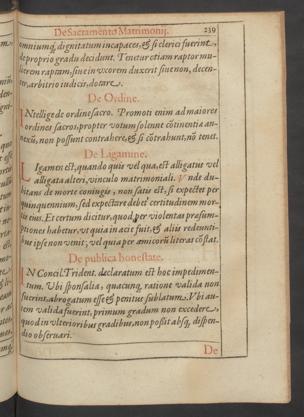 De Sacramento Matrimonij. 239
omniumq; dignitatum incapaces, & si clerici fuerint,
de proprio gradu decidunt. Tenetur etiam raptor mu-
lierem raptam, siue in vxorem duxerit siue non, decen-
ter, arbitrio iudicis, dotare.
De Ordine.
INtellige de ordine sacro. Promoti enim ad maiores
ordines sacros, propter votum solenne cōtinentiæ an-
nexū, non possunt contrahere, & si cōtrahunt, nō tenet.
De Ligamine.
Ligamen est, quando quis vel qua, est alligatus vel
alligata alteri, vinculo matrimoniali. Vnde du-
bitans de morte coniugis, non satis est, si expectet per
quinquennium, sed expectare debet certitudinem mor-
tis eius. Et certum dicitur, quod per violentas præsum-
ptiones habetur, vt quia in acie fuit, & aliis redeunti-
bus ipse non venit; vel quia per amicorū literas cōstat.
De publica honestate.
IN Concil. Trident. declaratum est hoc impedimen-
tum. Vbi sponsalia, quacunq; ratione valida non
fuerint, abrogatum esse & penitus sublatum. Vbi au-
tem valida fuerint, primum gradum non excedere,
quod in vlterioribus gradibus, non possit absq; dispen-
dio obseruari.
De